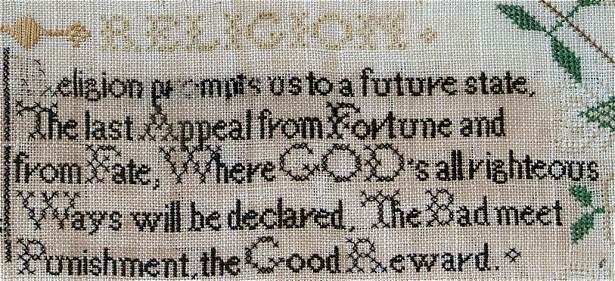 RELIGION.
Religion prompts us to a future state,
The last Appeal from Fortune and
from Fate, Where GOD's all righteous
Ways will be declared, The Bad meet
Punishment, the Good Reward.